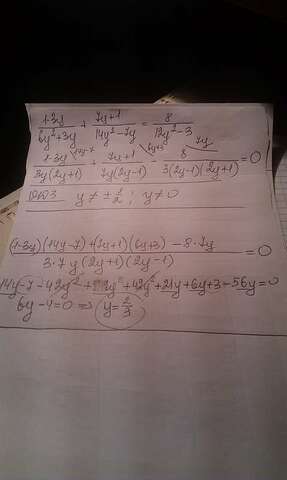 (1-3y)/(6y²+3y) + (7y+1)/(14y²-7y) = 8/(12y²-3)
(1-3y)/(3y(2y+1)) + (7y+1)/(7y(2y-1)) - 8/(3(2y-1)(2y+1)) = 0
ОДЗ y ≠ ± 1/2 ; y ≠ 0
((1-3y)(14y-7)+(7y+1)(6y+3)-8·7y)/(3·7y(2y+1)(2y-1)) = 0
14y-7-42y²+ +42y²+21y+6y+3-56y=0
6y-4=0 ⇒ y=2/3